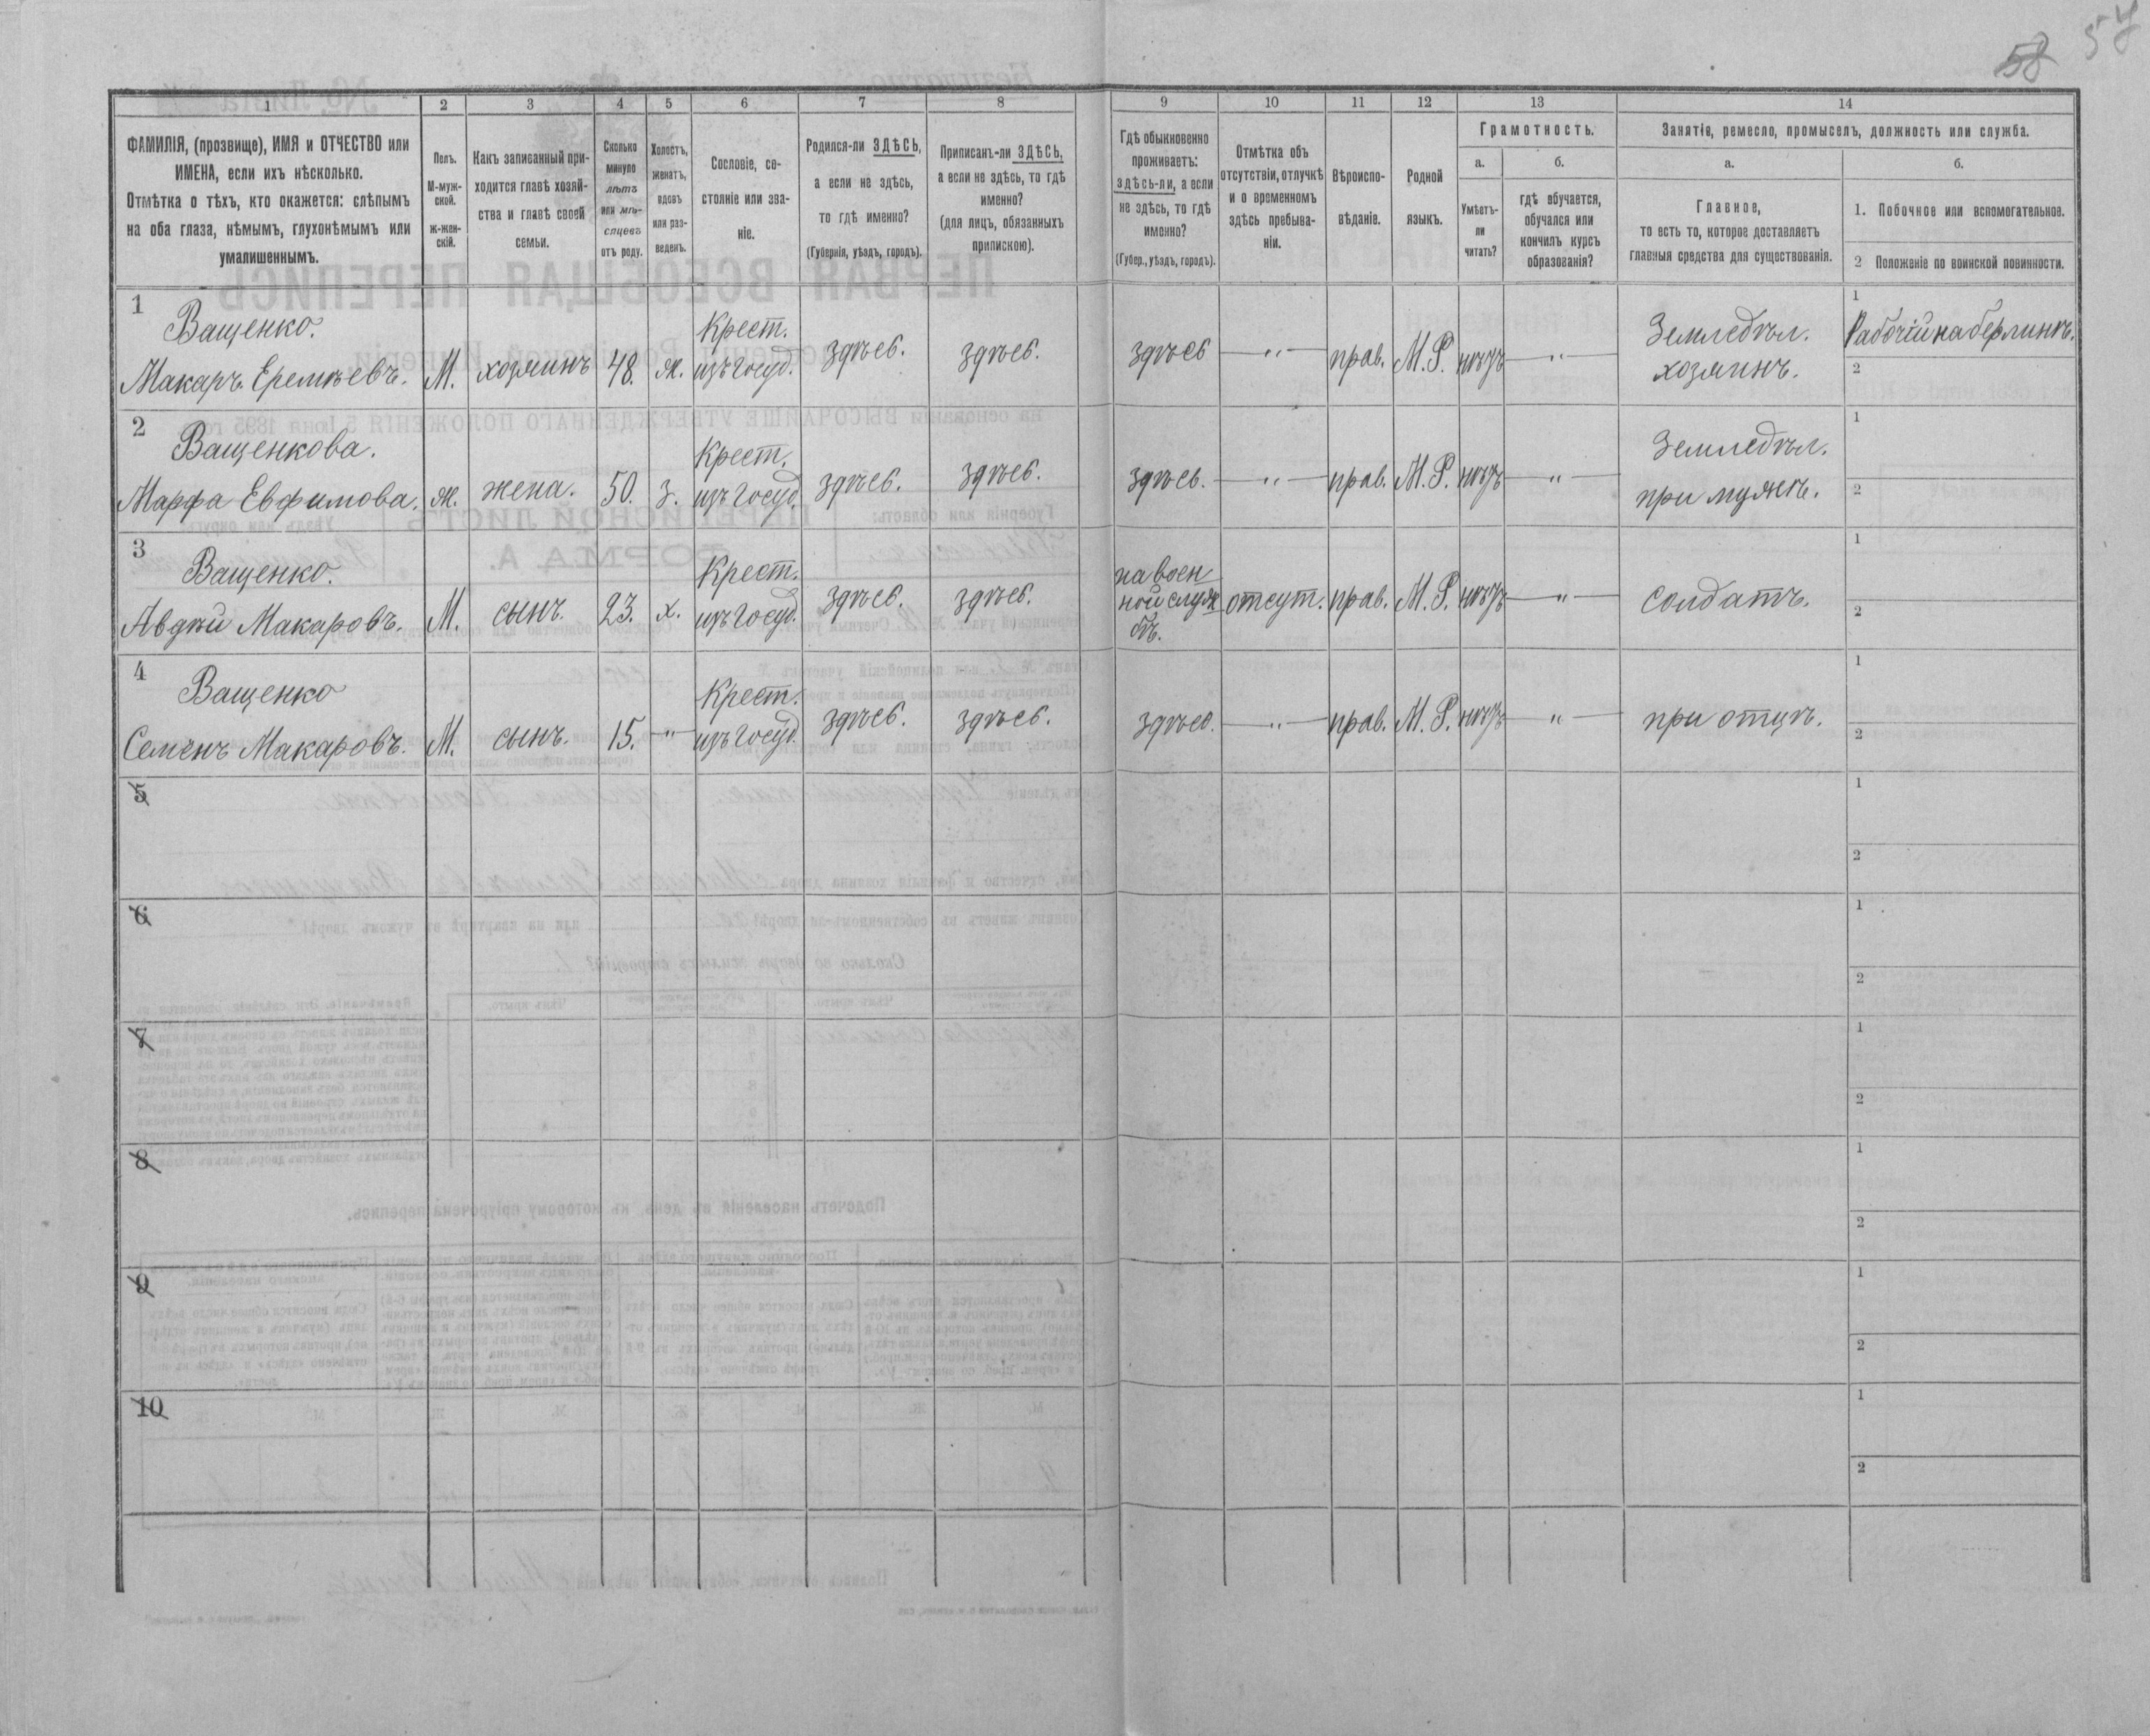 58 57
1 2 3 4 5 6 7 8 9 10 11 12 13 14
ФАМИЛІЯ, (прозвище), ИМЯ и ОТЧЕСТВО или
ИМЕНА, если ихъ нѣсколько.
Отмѣтка о тѣхъ, кто окажется: слѣпымъ
на оба глаза, нѣмымъ, глухонѣмымъ или
умалишеннымъ.
Полъ.
М-муж-
ской.
ж-жен-
скій.
Какъ записанный при-
ходится главѣ хозяй-
ства и главѣ своей
семьи.
Сколько
минуло
лѣтъ
или мѣ-
сяцевъ
отъ роду.
Холостъ,
женатъ,
вдовъ
или раз-
веденъ.
Сословіе, со-
стояніе или зва-
ніе.
Родился-ли ЗДѢСЬ,
а если не здѣсь,
то гдѣ именно?
(Губернія, уѣздъ, городъ).
Приписанъ-ли ЗДѢСЬ,
а если не здѣсь, то гдѣ
именно?
(для лицъ, обязанныхъ
припискою).
Гдѣ обыкновенно
проживаетъ:
здѣсь-ли, а если
не здѣсь, то гдѣ
именно?
(Губер., уѣздъ, городъ).
Отмѣтка объ
отсутствіи, отлучкѣ
и о временномъ
здѣсь пребыва-
ніи.
Вѣроиспо-
вѣданіе.
Родной
языкъ.
Грамотность.
а.
Умѣетъ-
ли
читать?
б.
гдѣ обучается,
обучался или
кончилъ курсъ
образованія?
Занятіе, ремесло, промыселъ, должность или служба.
а.
Главное,
то есть то, которое доставляетъ
главныя средства для существованія.
б.
1. Побочное или вспомогательное.
2 Положеніе по воинской повинности.
1
Ващенко.
Макаръ Еремѣевъ.
М.
хозяинъ
48.
ж.
Крест.
изъ госуд.
здѣсь.
здѣсь.
здѣсь
— „ —
прав.
М.Р.
нѣтъ
— „ —
Земледѣл.
хозяинъ.
1
Рабочій на берлинѣ.
2
2
Ващенкова.
Марфа Евфимова.
ж.
жена.
50.
з.
Крест.
изъ госуд.
здѣсь.
здѣсь.
здѣсь.
— „ —
прав.
М.Р.
нѣтъ
— „ —
Земледѣл.
при мужѣ.
1
2
3
Ващенко.
Авдѣй Макаровъ.
М.
сынъ.
23.
х.
Крест.
изъ госуд.
здѣсь.
здѣсь.
на воен
ной служ
бѣ.
отсут.
прав.
М.Р.
нѣтъ
— „ —
солдатъ.
1
2
4
Ващенко
Семенъ Макаровъ.
М.
сынъ.
15.
— „ —
Крест.
изъ госуд.
здѣсь.
здѣсь.
здѣсь.
— „ —
прав.
М.Р.
нѣтъ
— „ —
при отцѣ.
1
2
5
1
2
6
1
2
7
1
2
8
1
2
9
1
2
10
1
2